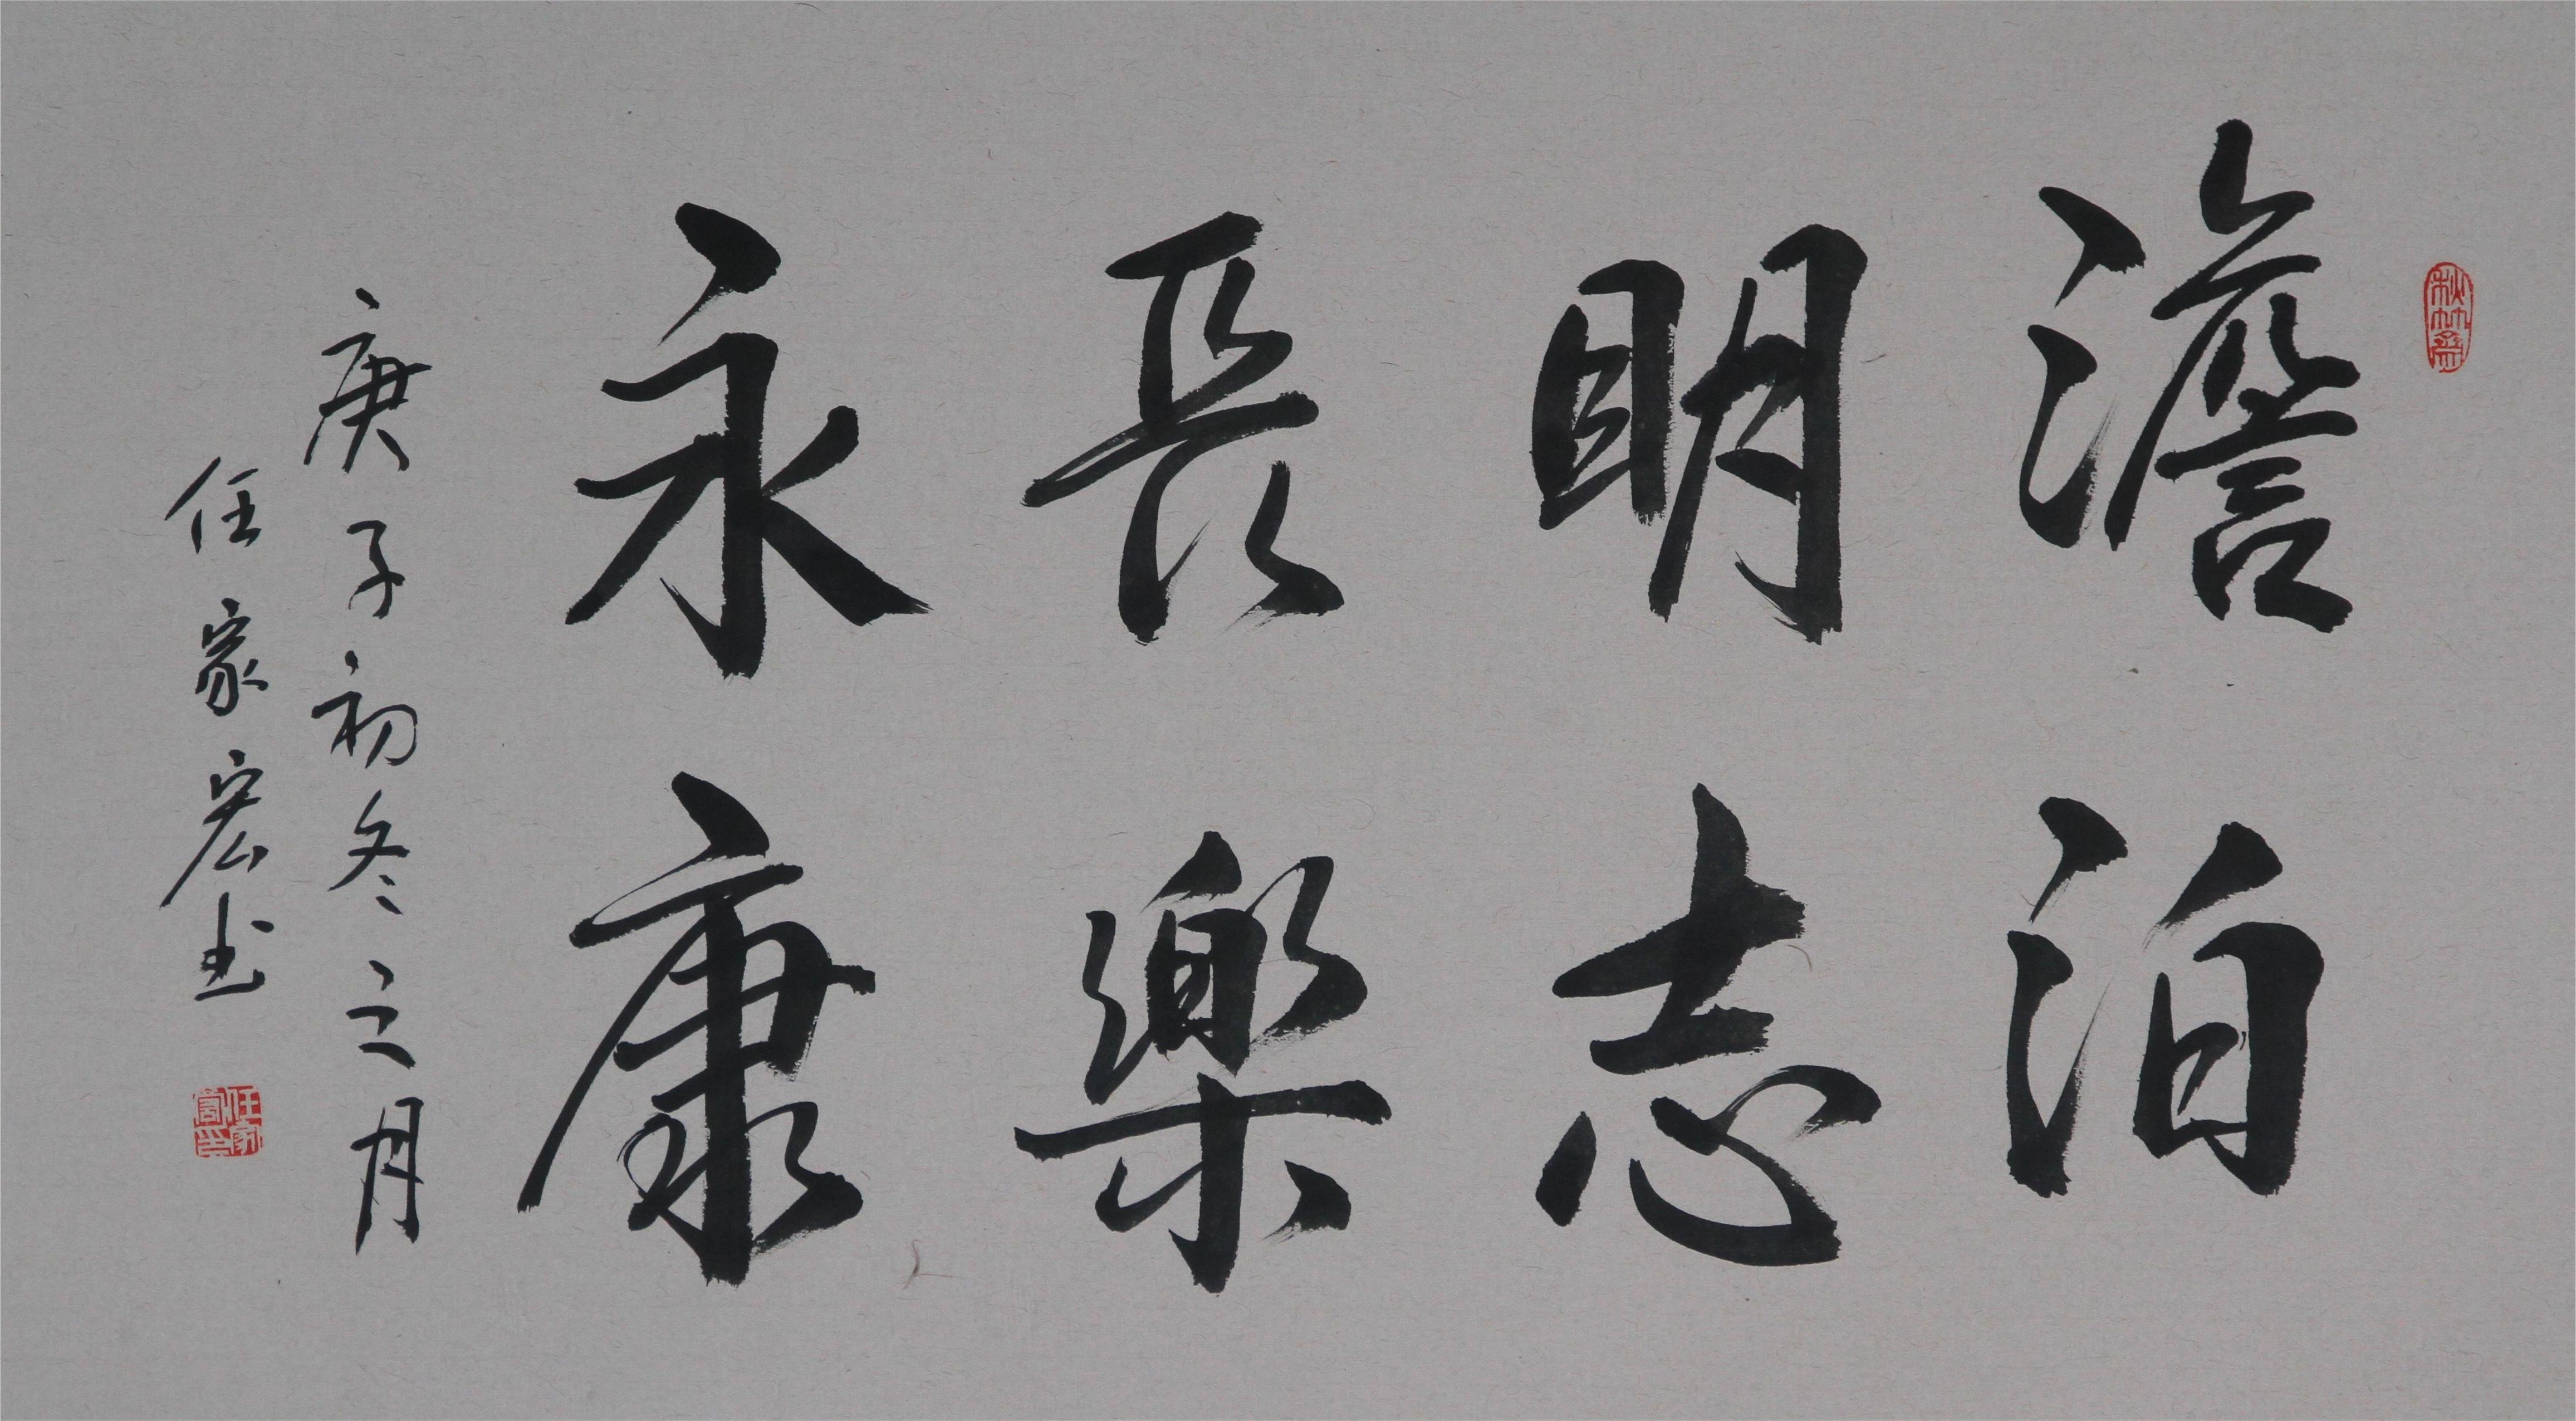 澹泊
明志
長樂
永康
庚子初冬之月
任家宏书